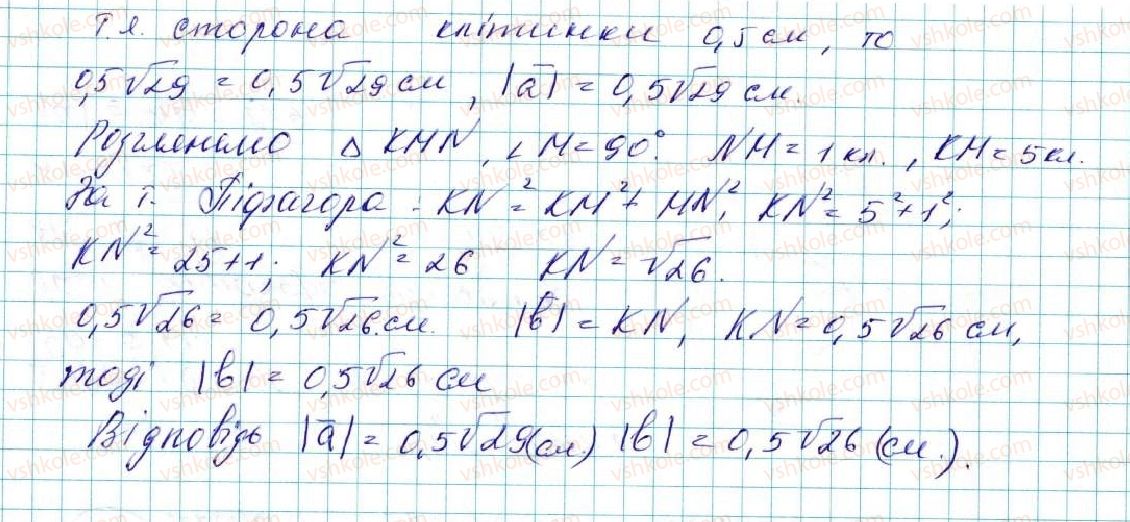 Т.я. сторона клітинки 0,5 см, то
0,5√29 = 0,5√29 см, |a̅| = 0,5√29 см.
Розглянемо △ KMN, ∠M = 90°. NM = 1 кл., KM = 5 кл.
За т. Піфагора - KN² = KM² + MN², KN² = 5² + 1²;
KN² = 25 + 1; KN² = 26 KN = √26.
0,5√26 = 0,5√26 см. |b̅| = KN, KN = 0,5√26 см,
тоді |b| = 0,5√26 см
Відповідь |a̅| = 0,5√29 (см.) |b| = 0,5√26 (см.).